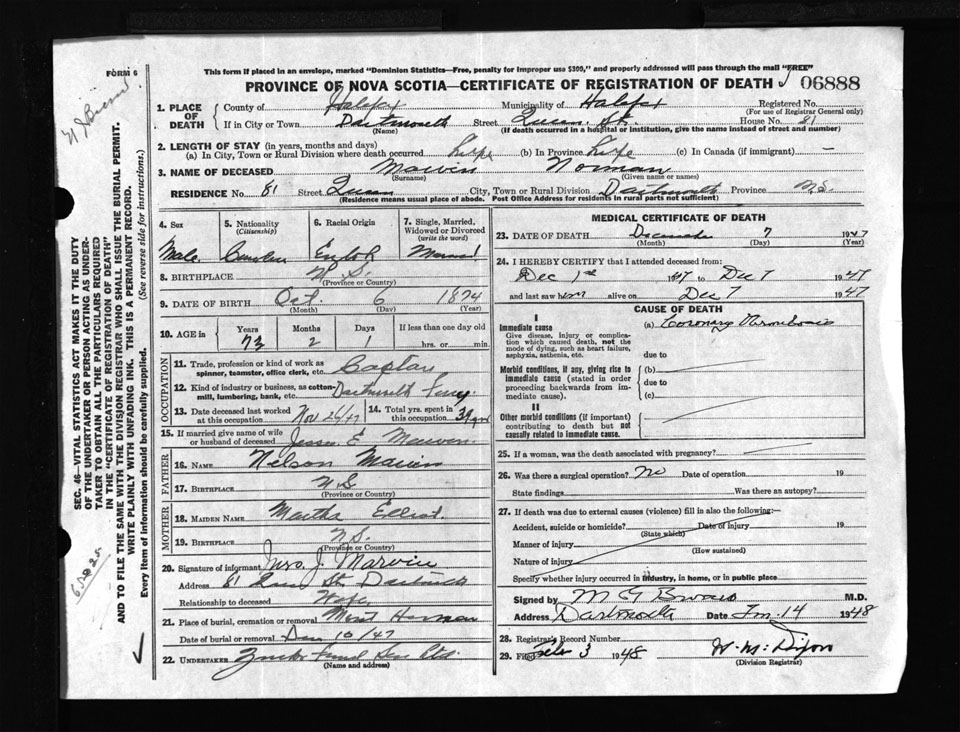 FORM 6
This form if placed in an envelope, marked "Dominion Statistics—Free, penalty for improper use $300," and properly addressed will pass through the mail "FREE"
PROVINCE OF NOVA SCOTIA—CERTIFICATE OF REGISTRATION OF DEATH 06888
1. PLACE OF DEATH
County of Halifax Municipality of Halifax Registered No.
(For use of Registrar General only)
If in City or Town Dartmouth Street Queen St. House No. 81
(Name) (If death occurred in a hospital or institution, give the name instead of street and number)
2. LENGTH OF STAY (in years, months and days)
(a) In City, Town or Rural Division where death occurred Life (b) In Province Life (c) In Canada (if immigrant) —
3. NAME OF DECEASED Marvin Norman
(Surname) (Given name or names)
RESIDENCE No. 81 Street Queen City, Town or Rural Division Dartmouth Province N.S.
(Residence means usual place of abode. Post Office Address for residents in rural parts not sufficient)
4. Sex
Male
5. Nationality (Citizenship)
Canadian
6. Racial Origin
English
7. Single, Married, Widowed or Divorced (write the word)
Married
8. BIRTHPLACE N.S.
(Province or Country)
9. DATE OF BIRTH Oct. 6 1874
(Month) (Day) (Year)
10. AGE in Years Months Days If less than one day old
73 2 1 hrs. or min.
OCCUPATION
11. Trade, profession or kind of work as spinner, teamster, office clerk, etc. Captain
12. Kind of industry or business, as cotton-mill, lumbering, bank, etc. Dartmouth Ferry
13. Date deceased last worked at this occupation Nov 24/47
14. Total yrs. spent in this occupation
15. If married give name of wife or husband of deceased Jessie E Marvin
FATHER
16. NAME Nelson Marvin
17. BIRTHPLACE N.S.
(Province or Country)
MOTHER
18. MAIDEN NAME Martha Elliot.
19. BIRTHPLACE N.S.
(Province or Country)
20. Signature of informant Mrs. J. Marvin
Address 81 Queen St. Dartmouth
Relationship to deceased Wife
21. Place of burial, cremation or removal Mount Hermon
Date of burial or removal Dec 10/47
22. UNDERTAKER
(Name and address)
MEDICAL CERTIFICATE OF DEATH
23. DATE OF DEATH December 7 1947
(Month) (Day) (Year)
24. I HEREBY CERTIFY that I attended deceased from:
Dec 1st 1947 to Dec 7 1947
and last saw him alive on Dec 7 1947
CAUSE OF DEATH
I
Immediate cause
Give disease, injury or complication which caused death, not the mode of dying, such as heart failure, asphyxia, asthenia, etc.
(a) Coronary Thrombosis
due to
Morbid conditions, if any, giving rise to immediate cause (stated in order proceeding backwards from immediate cause).
(b)
due to
(c)
II
Other morbid conditions (if important) contributing to death but not causally related to immediate cause.
25. If a woman, was the death associated with pregnancy?
26. Was there a surgical operation? No Date of operation 19
State findings Was there an autopsy?
27. If death was due to external causes (violence) fill in also the following:—
Accident, suicide or homicide? Date of injury 19
(State which)
Manner of injury
(How sustained)
Nature of injury
Specify whether injury occurred in industry, in home, or in public place
Signed by M.D.
Address Dartmouth Date Jan. 14 1948
28. Registrar's Record Number
29. Filed Feb 3 1948
(Division Registrar)
SEC. 46—VITAL STATISTICS ACT MAKES IT THE DUTY
OF THE UNDERTAKER OR PERSON ACTING AS UNDER-
TAKER TO OBTAIN ALL THE PARTICULARS REQUIRED
IN THE "CERTIFICATE OF REGISTRATION OF DEATH"
AND TO FILE THE SAME WITH THE DIVISION REGISTRAR WHO SHALL ISSUE THE BURIAL PERMIT.
WRITE PLAINLY WITH UNFADING INK. THIS IS A PERMANENT RECORD.
Every item of information should be carefully supplied. (See reverse side for instructions.)